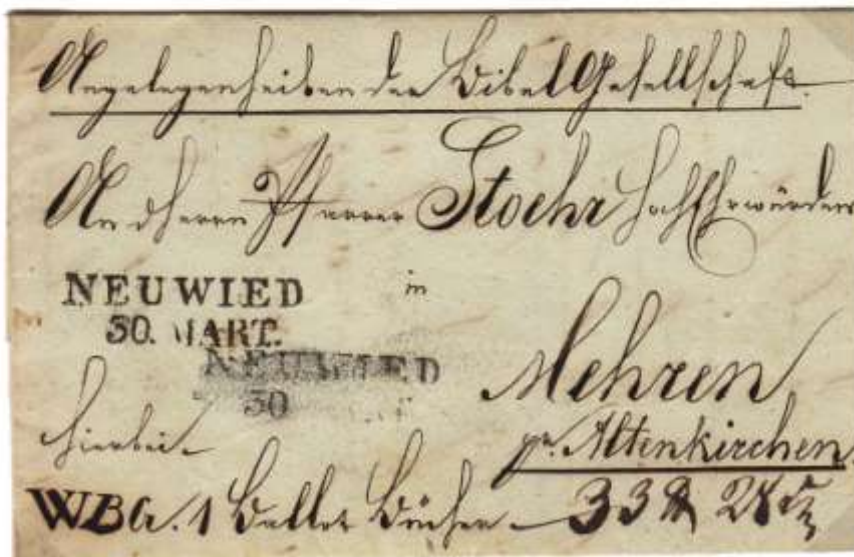 Angelegenheiten der Bibel Gesellschaft.
An d Herrn Pfarrer Stoehr HochEhrwürden
in
NEUWIED
30. MART.
NEUWIED
30
Mehren
pr. Altenkirchen.
hierbei
WBG. 1 Ballot Bücher 33 28